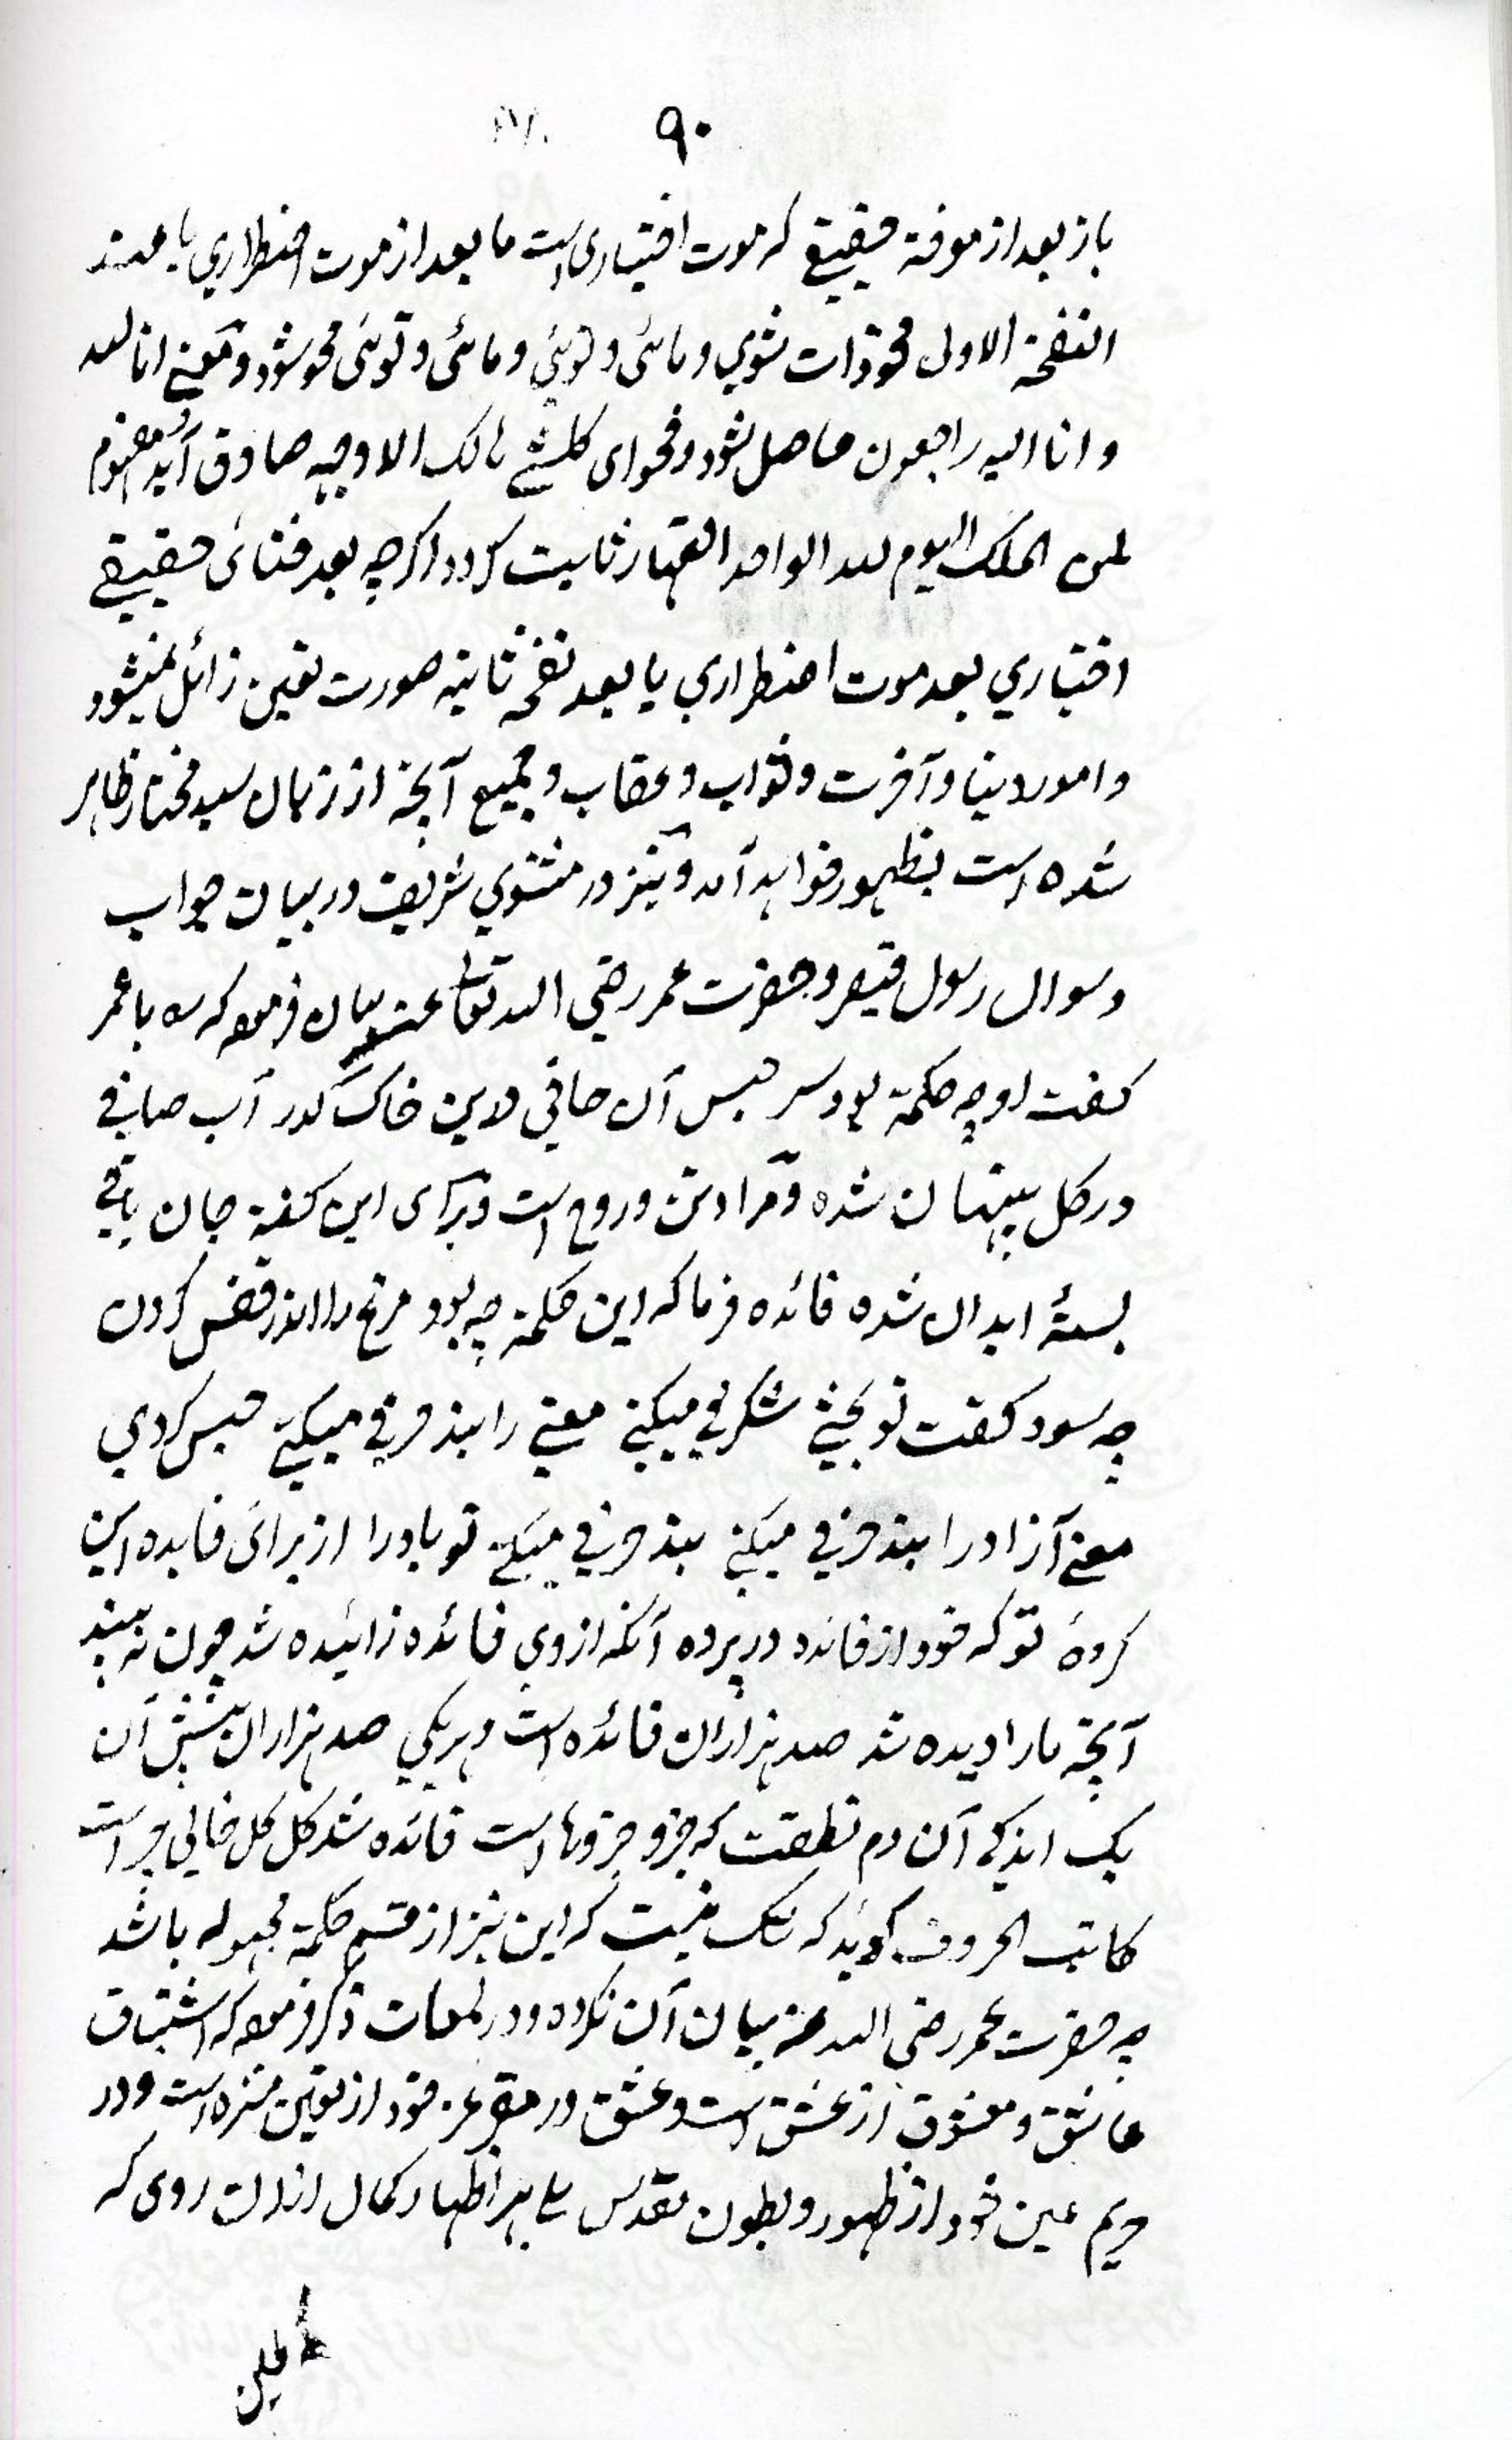 ۹۰
باز بعد از موفة حقیقے که موت اختیاری است ما بعد از موت اضطراري یا عند
النفخة الاولی محو ذات شوي و مائی و توئی و مائی و توئی محو شود و معنے انا لله
و انا الیه راجعون حاصل شود و فحوای کل شے هالک الا وجهه صادق آید و مفهوم
لمن الملک الیوم لله الواحد القهار ثابت گردد اگرچه بعد فنائی حقیقے
اختیاري بعد موت اضطراري یا بعد نفخه ثانیه صورت تعین زائل نمیشود
و امور دنیا و آخرت و ثواب و عقاب و جمیع آنچه از زبان سید مختار ظاهر
شده است بظهور خواهد آمد و نیز در مثنوي شریف در بیان جواب
و سوال رسول قیصر و حضرت عمر رضي الله تعالی عنه بیان فرموده که سه با عمر
گفت او چه حکمة بود و سر حبس آن صافي درین خاک کدر آب صافے
در گل پنهان شده و مراد تن و روح است و برای این گفته جان باقے
بستهٔ ابدان شده فائده فرما که این حکمة چه بود مرغ را اندر قفس کردن
چه سود گفت تو بحثے شگرفے میکنے معنے را بند حرفے میکنے حبس کردي
معنے آزاد را بند حرفے میکنے بند حرفے میکنے تو باد را از برائ فایده این
کردهٔ تو که خود از فائده در پرده آنکه از وي فائده زائیده شد چون نه بیند
آنچه ما را دیده شد صد هزاران فائده است و هر یکي صد هزاران پیش آن
یک اندکے آن دم نطقت که جزو جزوها است فائده شد کل کل خالي چرا است
کاتب الحروف گوید که شک نیست که این نیز از قسم حکمة مجهوله باشد
چه حضرت عمر رضي الله عنه بیان آن نکرده و در لمعات ذکر فرموده که اشتقاق
عاشق و معشوق از عشق است و عشق در مقر عز خود از تعین منزه است و در
حریم عین خود از ظهور و بطون مقدس بلے بهر اظهار کمال ازان روی که